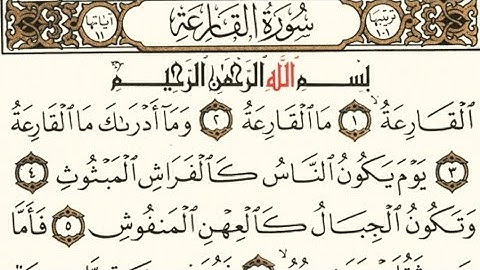 ترتيبها ١٠١ سُورَةُ القَارِعَةِ آياتها ١١
بِسْمِ اللَّهِ الرَّحْمَٰنِ الرَّحِيمِ
ٱلْقَارِعَةُ ١ مَا ٱلْقَارِعَةُ ٢ وَمَآ أَدْرَىٰكَ مَا ٱلْقَارِعَةُ
٣ يَوْمَ يَكُونُ ٱلنَّاسُ كَٱلْفَرَاشِ ٱلْمَبْثُوثِ ٤
وَتَكُونُ ٱلْجِبَالُ كَٱلْعِهْنِ ٱلْمَنفُوشِ ٥ فَأَمَّا